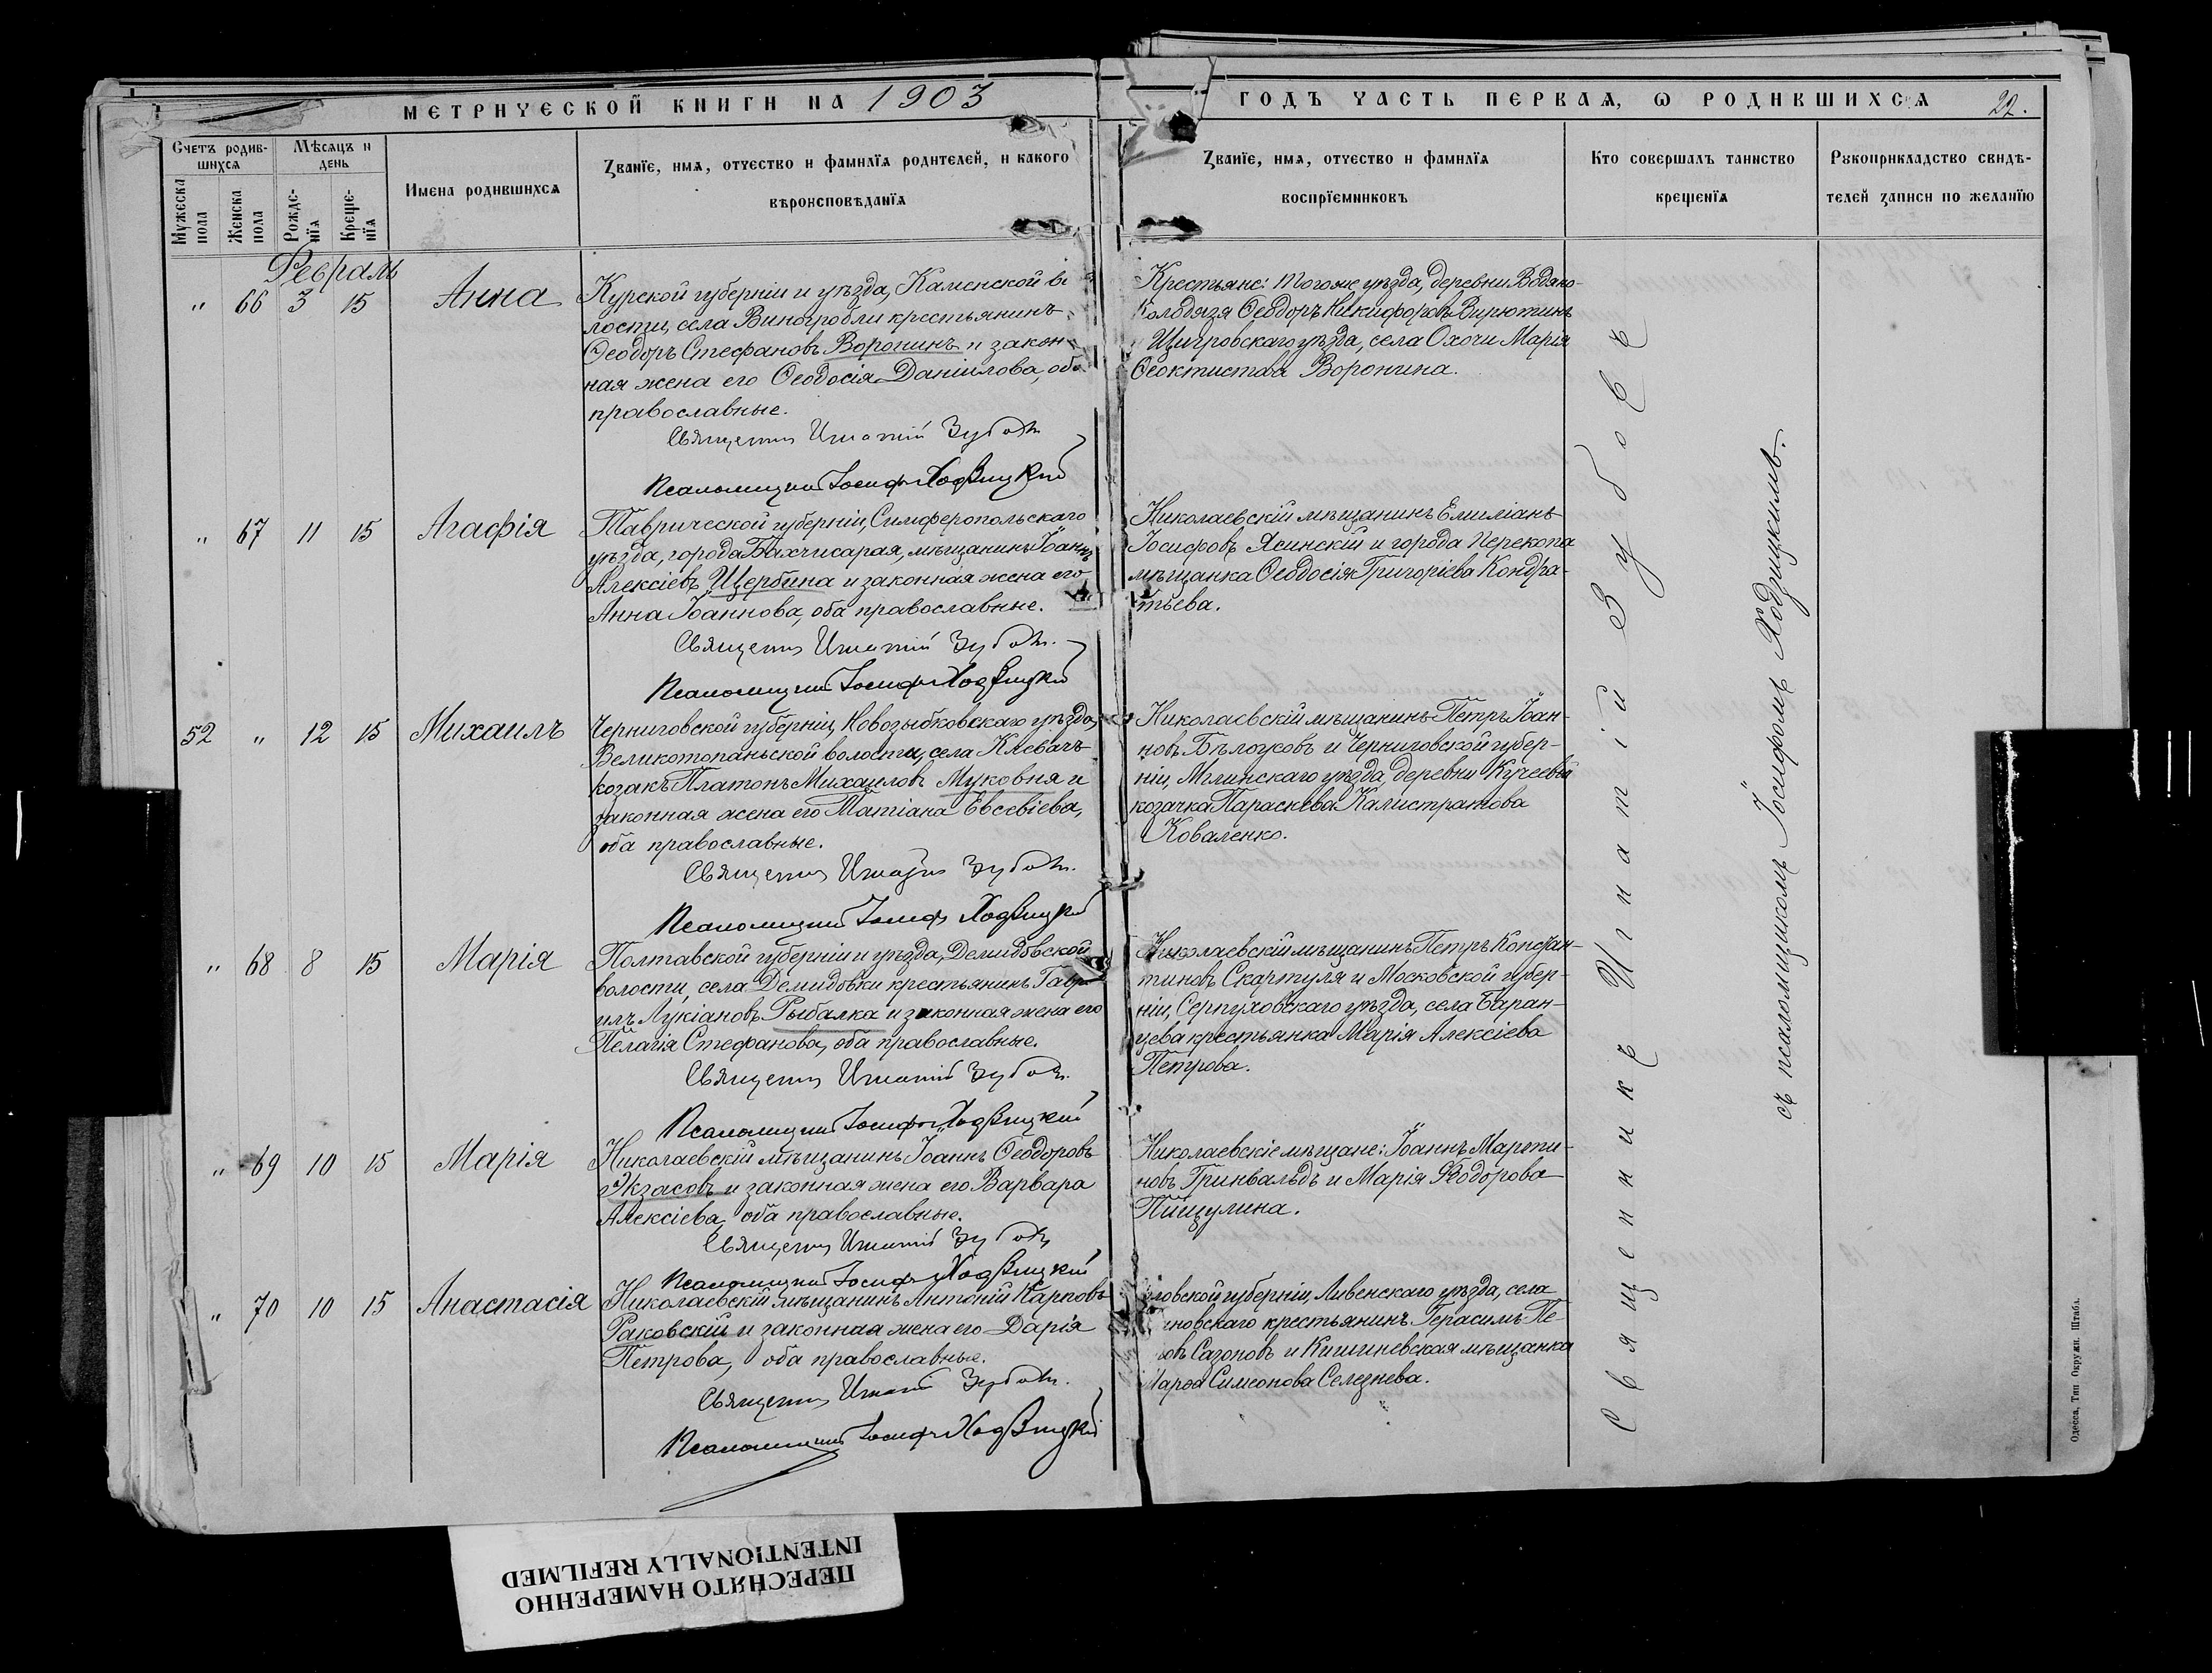 МЕТРИЧЕСКОЙ КНИГИ НА 1903
ГОДЪ ЧАСТЬ ПЕРВАЯ, Ѡ РОДИВШИХСЯ
Счетъ родив-
шихся
Мѣсяцъ и
день
Мужеска
пола
Женска
пола
Рожде-
нїя
Креще-
нїя
Имена родившихся
Званїе, имя, отчество и фамилїя родителей, и какого
вѣроисповѣданїя
Званїе, имя, отчество и фамилїя
воспрїемниковъ
Кто совершалъ таинство
крещенїя
Рукоприкладство свидѣ-
телей записи по желанїю
Февраль
" 66 3 15 Анна
Курской губерніи и уѣзда, Каменской во
лости, села Виногробли крестьянинъ
Ѳеодоръ Стефановъ Воронинъ и закон-
ная жена его Ѳеодосія Даніилова, оба
православные.
Священникъ Игнатій Зубовъ
Псаломщикъ Іосифъ Ходзицкій
Крестьяне: того же уѣзда, деревни Водяно-
Колодязя Ѳеодоръ Никифоровъ Вирютинъ
Щигровскаго уѣзда, села Охочи Марія
Ѳеоктистова Воронина.
" 67 11 15 Агафія
Таврической губерніи, Симферопольскаго
уѣзда, города Бахчисарая, мѣщанинъ Іоаннъ
Алексіевъ Щербина и законная жена его
Анна Іоаннова, оба православные.
Священникъ Игнатій Зубовъ.
Псаломщикъ Іосифъ Ходзицкій
Николаевскій мѣщанинъ Емиліанъ
Іосифовъ Ясинскій и города Перекопа
мѣщанка Ѳеодосія Григоріева Кондра-
тьева.
52 " 12 15 Михаилъ
Черниговской губерніи, Новозыбковскаго уѣзда,
Великотопаньской волости, села Клевачъ
козакъ Платонъ Михаиловъ Муковня и
законная жена его Татіана Евсевіева,
оба православные.
Священникъ Игнатій Зубовъ.
Псаломщикъ Іосифъ Ходзицкій
Николаевскій мѣщанинъ Петръ Іоан-
новъ Бѣлоусовъ и Черниговской губер-
ніи, Мглинскаго уѣзда деревни Кучеевки
козачка Параскева Калистратова
Коваленко.
" 68 8 15 Марія
Полтавской губерніи и уѣзда, Демидовской
волости, села Демидовки крестьянинъ Гаврі
илъ Лукіановъ Рыбалка и законная жена его
Пелагія Стефанова, оба православные.
Священникъ Игнатій Зубовъ.
Псаломщикъ Іосифъ Ходзицкій
Николаевскій мѣщанинъ Петръ Констан-
тиновъ Скартуля и Московской губер-
ніи, Серпуховскаго уѣзда, села Баран-
цева крестьянка Марія Алексіева
Петрова.
" 69 10 15 Марія
Николаевскій мѣщанинъ Іоаннъ Ѳеодоровъ
Экзасовъ и законная жена его Варвара
Алексіева, оба православные.
Священникъ Игнатій Зубовъ
Псаломщикъ Іосифъ Ходзицкій
Николаевскіе мѣщане: Іоаннъ Марти-
новъ Гринвальдъ и Марія Ѳеодорова
Пищулина.
" 70 10 15 Анастасія
Николаевскій мѣщанинъ Антоній Карповъ
Раковскій и законная жена его Дарія
Петрова, оба православные.
Священникъ Игнатій Зубовъ.
Псаломщикъ Іосифъ Ходзицкій
ловской губерніи, Ливенскаго уѣзда, села
новскаго крестьянинъ Герасимъ Пе-
овъ Сазоновъ и Кишиневская мѣщанка
Марѳа Симеонова Селезнева.
Священникъ Игнатій Зубовъ
съ псаломщикомъ Іосифомъ Ходзицкимъ.
Одесса, Тип Окружн. Штаба.
ПЕРЕСНЯТО НАМЕРЕННО
INTENTIONALLY REFILMED